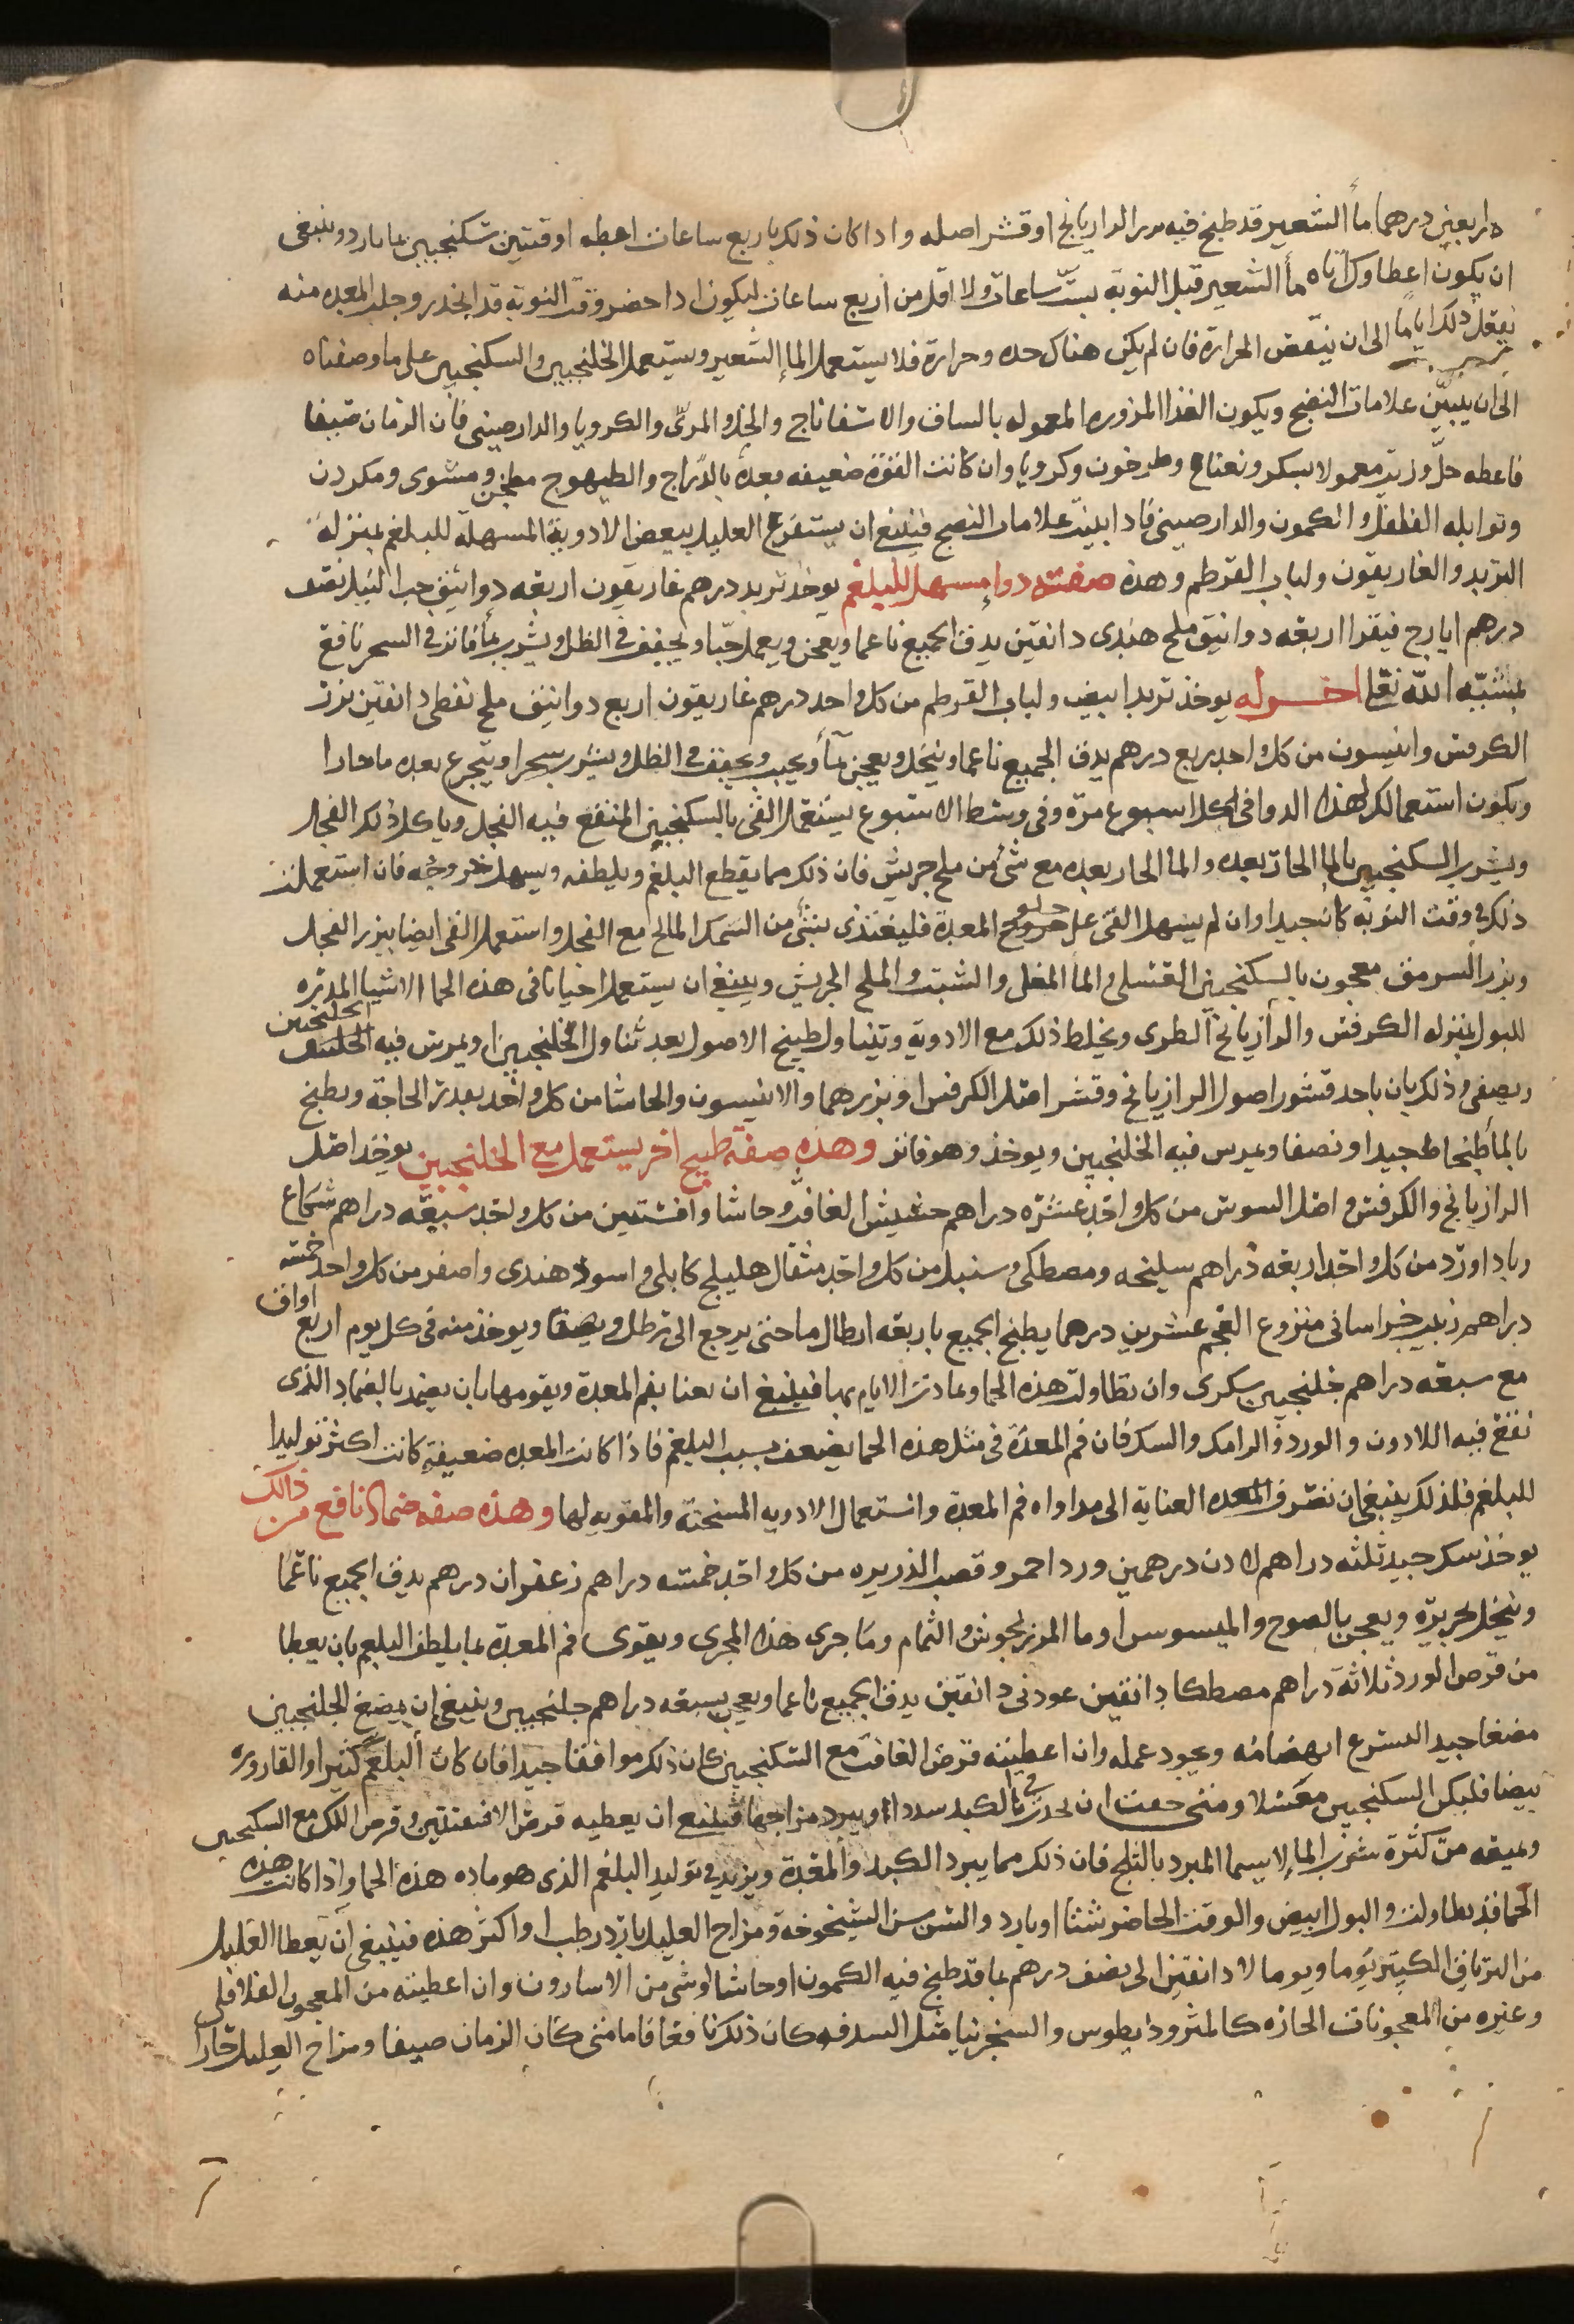 اربعين درهما ما الشعير قد طبخ فيه بزر الرازيانج او قشر اصله واذا كان ذلك باربع ساعات اعطه اوقيتين سكنجبين بماء بارد وينبغى
ان يكون اعطاوك اياه ماً الشعير قبل النوبة بستّ ساعات ولا اقل من اربع ساعات ليكون اذا حضر وقت النوبة قد انحدر وجلت المعده منه
يفعل ذلك اياما الى ان ينقص الحرارة فان لم يكن هناك حده وحرارة فلا يستعمل الما الشعير ويستعمل الخلنجبين والسكنجبين على ما وصفناه
الى ان يتبيّن علامات النضج ويكون الغذا المزوره المعموله بالساق والاسفاناج والخل والمرّى والكرويا والدارصينى فان الزمان صيفا
فاعطه خلّ وزيت معمولا بسكر ونعناع وطرخون وكرويا وان كانت القوة ضعيفه فغده بالدراج والطيهوج مطجن ومشوى ومكردن
وتوابله الفلفل والكمون والدارصينى فاذا ابينت علامات النضج فينبغ ان يستفرغ العليل ببعض الادوية المسهلة للبلغم بمنزلة
التربد والغاريقون ولباب القرطم وهذه صفته دواء مسهل للبلغم يوخذ تربد درهم غاريقون اربعه دوانيق حب النيل نصف
درهم ايارج فيقرا اربعه دوانيق ملح هندى دانقين يدق الجميع ناعما ويعجن ويعمل حبّا ويجفف فى الظل ويشرب بماً فاتر فى السحر نافع
بمشيّه الله تعلى اخر له يوخذ تربد ابيض ولباب القرطم من كل واحد درهم غاريقون اربع دوانيق ملح نفطى دانقين بزر
الكرفس وانيسون من كل واحد ربع درهم يدق الجميع ناعما وينخل ويعجن بماً ويحبب ويجفف فى الظل ويشرب سحرا ويتجرع بعده ما حارا
ويكون استعمالك لهذا الدوا فى كل اسبوع مرّه وفى وسط الاسبوع يستعمل القى بالسكنجبين المنقع فيه الفجل وياكل ذلك الفجل
ويشرب السكنجبين بالما الحار بعده والما الحار بعده مع شىٔ من ملح جريش فان ذلك مما يقطع البلغم ويلطفه ويسهل خروجه فان استعملت
ذلك فى وقت النوبة كان جيدا وان لم يسهل القى على خلو المعدة فليغتذى بشىٔ من السمك المالح مع الفجل واستعمل القى ايضا ببزر الفجل
وبزر السرمق معجون بالسكنجبين العسلى والماً المغلى والشبت والملح الجريش وينبغ ان يستعمل احيانا فى هذه الحما الاشيا المدرّه
للبول بمنزله الكرفس والرازيانج الطرى ويخلط ذلك مع الادوية وتتناول طبيخ الاصول بعد تناول الخلنجبين او يمرس فيه الخلنجبين
ويصفى وذلك بان ياخذ قشور اصول الرازيانج وقشر اصل الكرفس وبزرهما والانيسون والحاشا من كل واحد بقدر الحاجة ويطبخ
بالماً طبخا جيدا ونصفا ويمرس فيه الخلنجبين ويوخذ وهو فاتر وهذه صفة طبيخ اخر يستعمل مع الخلنجبين يوخذ اصل
الرازيانج والكرفس واصل السوس من كل واحد عشره دراهم حشيش الغافت وحاشا وافسنتين من كل واحد سبعه دراهم شكاع
وباداورد من كل واحد اربعه دراهم سليخه ومصطكى وسنبل من كل واحد مثقال هليلج كابلى واسود هندى واصفر من كل واحد خمسه
دراهم زبيب خراسانى منزوع العجم عشرين درهما يطبخ الجميع باربعه ارطال ما حتى يرجع الى رطل ويصفا ويوخذ منه فى كل يوم اربع اواق
مع سبعه دراهم خلنجبين سكرى وان تطاولت هذه الحما وعادت الايام بها فينبغ ان يعنا بفم المعدة ويقومها بان يضمد بالضماد الذى
نقع فيه اللادون والورد والرامك والسك فان فم المعدة فى مثل هذه الحما يضعف بسبب البلغم فاذا كانت المعده ضعيفة كانت اكثر توليدا
للبلغم فلذلك ينبغى ان نصرف العناية الى مداواه فم المعدة واستعمال الادويه المسخنة والمقويه لها وهذه صفه ضماد نافع من ذالك
يوخذ سك جيد ثلثه دراهم لادن درهمين ورد احمر وقصب الذريره من كل واحد خمسه دراهم زعفران درهم يدق الجميع ناعما
وينخل بحريرة ويعجن بالصوح والميسوس او ما المرزنجوش والثمام وما جرى هذا المجرى ويقوى فم المعدة بما يلطف البلغم بان يعطا
من قرص الورد ثلاثة دراهم مصطكا دانقين عود نى دانقين يدق الجميع ناعما ويعجن بسبعه دراهم جلنجبين وينبغى ان يمضغ الجلنجبين
مضغا جيدا ليسرع انهضامه ويجود عمله وان اعطيته قرص الغافت مع السكنجبين كان ذلك موافقا جيدا فان كان البلغم كثيرا والقاروره
بيضا فليكن السكنجبين معسلا ومتى خفت ان يحدث فى الكبد سددا او يبرد مزاجها فينبغ ان يعطيه قرص الافسنتين وقرص اللك مع السكنجبين
ويمنعه من كثرة شرب الما لا سيما المبرد بالثلج فان ذلك مما يبرد الكبد والمعدة ويزيد فى توليد البلغم الذى هو ماده هذه الحما واذا كانت هذه
الحما قد تطاولت والبول ابيض والوقت الحاضر شتا او بارد والسن سن الشيخوخة ومزاج العليل بارد رطب او اكثر هذه فينبغى ان يعطا العليل
من الترياق الكبير يوما ويوما لا دانقين الى نصف درهم بما قد طبخ فيه الكمون او حاشا او شى من الاسارون وان اعطيته من المعجون الفلافلى
وغيره من المعجونات الحاره كالمثروديطوس والسنجرنيا مثل البندقه كان ذلك نافعا فاما متى كان الزمان صيفا ومزاج العليل حارا